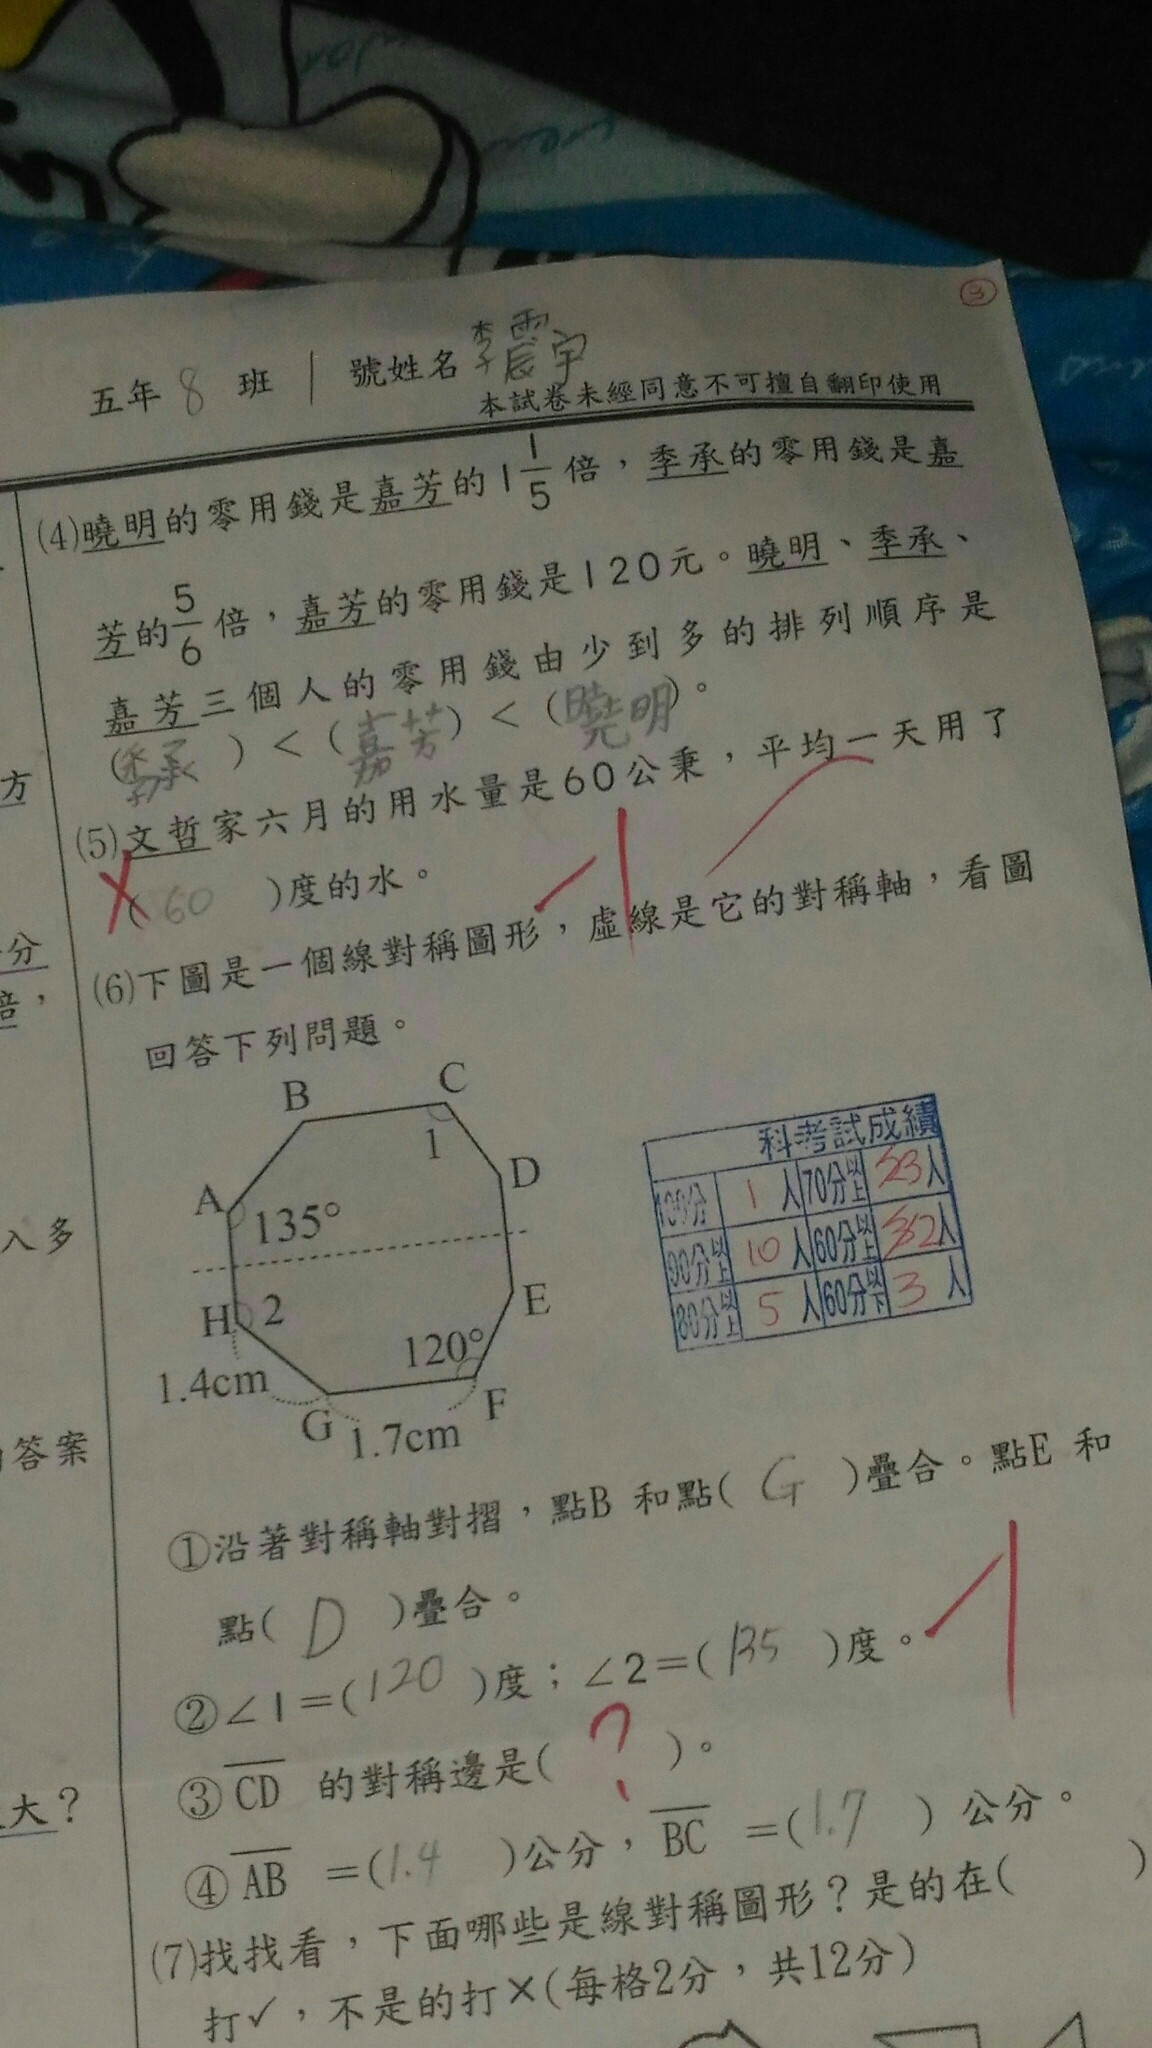 ③
五年 8 班 1 號姓名 李震宇
本試卷未經同意不可擅自翻印使用
(4)曉明的零用錢是嘉芳的1 1/5 倍，季承的零用錢是嘉
芳的 5/6 倍，嘉芳的零用錢是120元。曉明、季承、
嘉芳三個人的零用錢由少到多的排列順序是
(季承)<(嘉芳)<(曉明)。
(5)文哲家六月的用水量是60公秉，平均一天用了
(60)度的水。
(6)下圖是一個線對稱圖形，虛線是它的對稱軸，看圖
回答下列問題。
B C
1
A D
135°
H 2 E
120°
1.4cm
G F
1.7cm
科考試成績
100分 1人 70分以上 33人
90分以上 10人 60分以上 32人
80分以上 5人 60分以下 3人
①沿著對稱軸對摺，點B 和點(G)疊合。點E 和
點(D)疊合。
②∠1=(120)度；∠2=(135)度。
③CD 的對稱邊是(?)。
④AB =(1.4)公分，BC =(1.7) 公分。
(7)找找看，下面哪些是線對稱圖形？是的在( )
打✓，不是的打×(每格2分，共12分)
方
分
倍，
入多
答案
大？